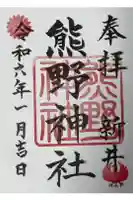 奉拝 新井
熊野神社
令和六年一月吉日